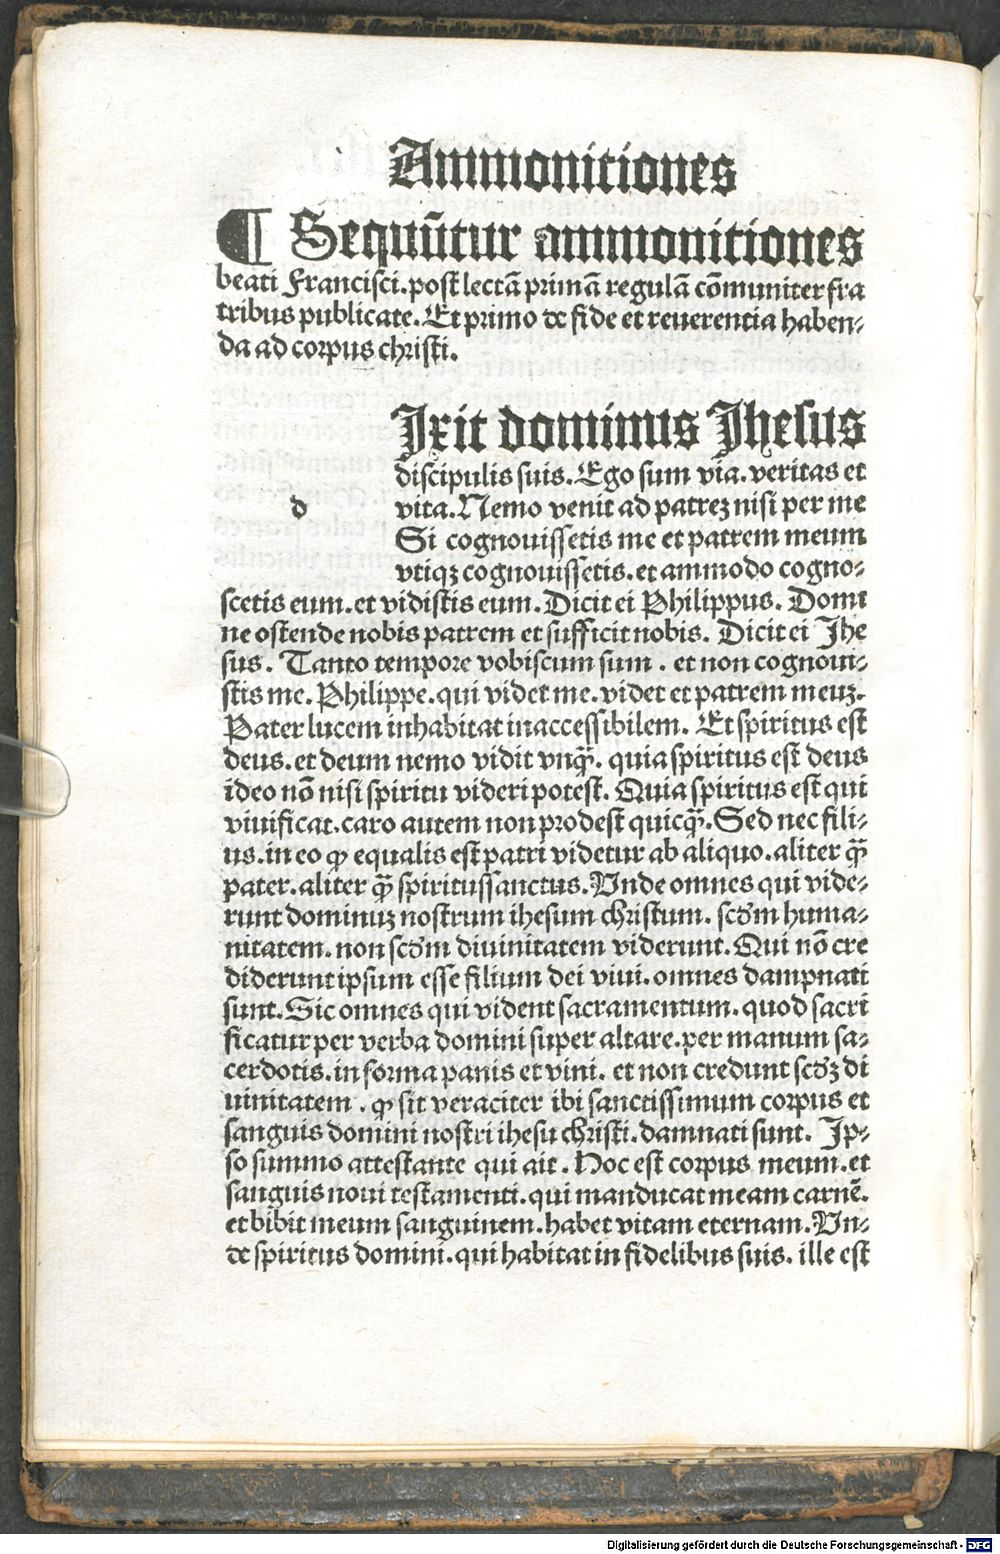 Ammonitiones
¶ Sequūtur ammonitiones
beati Francisci. post lectā primā regulā cōmuniter fra
tribus publicate. Et primo de fide et reuerentia haben-
da ad corpus christi.
d
Ixit dominus Jhesus
discipulis suis. Ego sum via. veritas et
vita. Nemo venit ad patrez nisi per me
Si cognouissetis me et patrem meum
vtiqz cognouissetis. et ammodo cogno-
scetis eum. et vidistis eum. Dicit ei Philippus. Domi
ne ostende nobis patrem et sufficit nobis. Dicit ei Jhe
sus. Tanto tempore vobiscum sum. et non cognoui-
stis me. Philippe. qui videt me. videt et patrem meuz.
Pater lucem inhabitat inaccessibilem. Et spiritus est
deus. et deum nemo vidit vnqꝫ̄. quia spiritus est deus
ideo nō nisi spiritu videri potest. Quia spiritus est qui
viuificat. caro autem non prodest quicqꝫ̄. Sed nec fili-
us. in eo ꝙ equalis est patri videtur ab aliquo. aliter qꝫ̄
pater. aliter qꝫ̄ spiritussanctus. Vnde omnes qui vide-
runt dominuz nostrum ihesum christum. scd̄m huma-
nitatem. non scd̄m diuinitatem viderunt. Qui nō cre
diderunt ipsum esse filium dei viui. omnes dampnati
sunt. Sic omnes qui vident sacramentum. quod sacri
ficatur per verba domini super altare. per manum sa-
cerdotis. in forma panis et vini. et non credunt scd̄z di
uinitatem. ꝙ sit veraciter ibi sanctissimum corpus et
sanguis domini nostri ihesu christi. damnati sunt. Ip-
so summo attestante qui ait. Hoc est corpus meum. et
sanguis noui testamenti. qui manducat meam carnē.
et bibit meum sanguinem. habet vitam eternam. Vn-
de spiritus domini. qui habitat in fidelibus suis. ille est
Digitalisierung gefördert durch die Deutsche Forschungsgemeinschaft - DFG